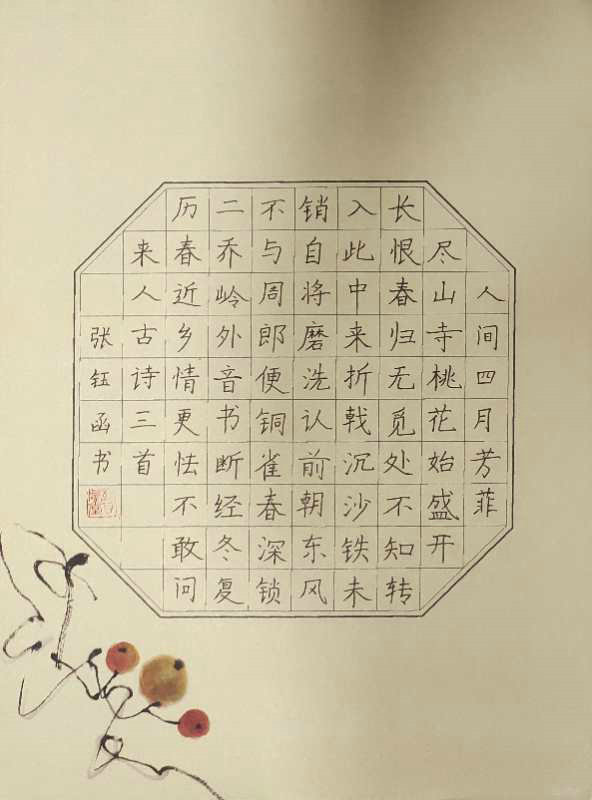 人间四月芳菲
尽山寺桃花始盛开
长恨春归无觅处不知转
入此中来折戟沉沙铁未
销自将磨洗认前朝东风
不与周郎便铜雀春深锁
二乔岭外音书断经冬复
历春近乡情更怯不敢问
来人古诗三首
张钰函书